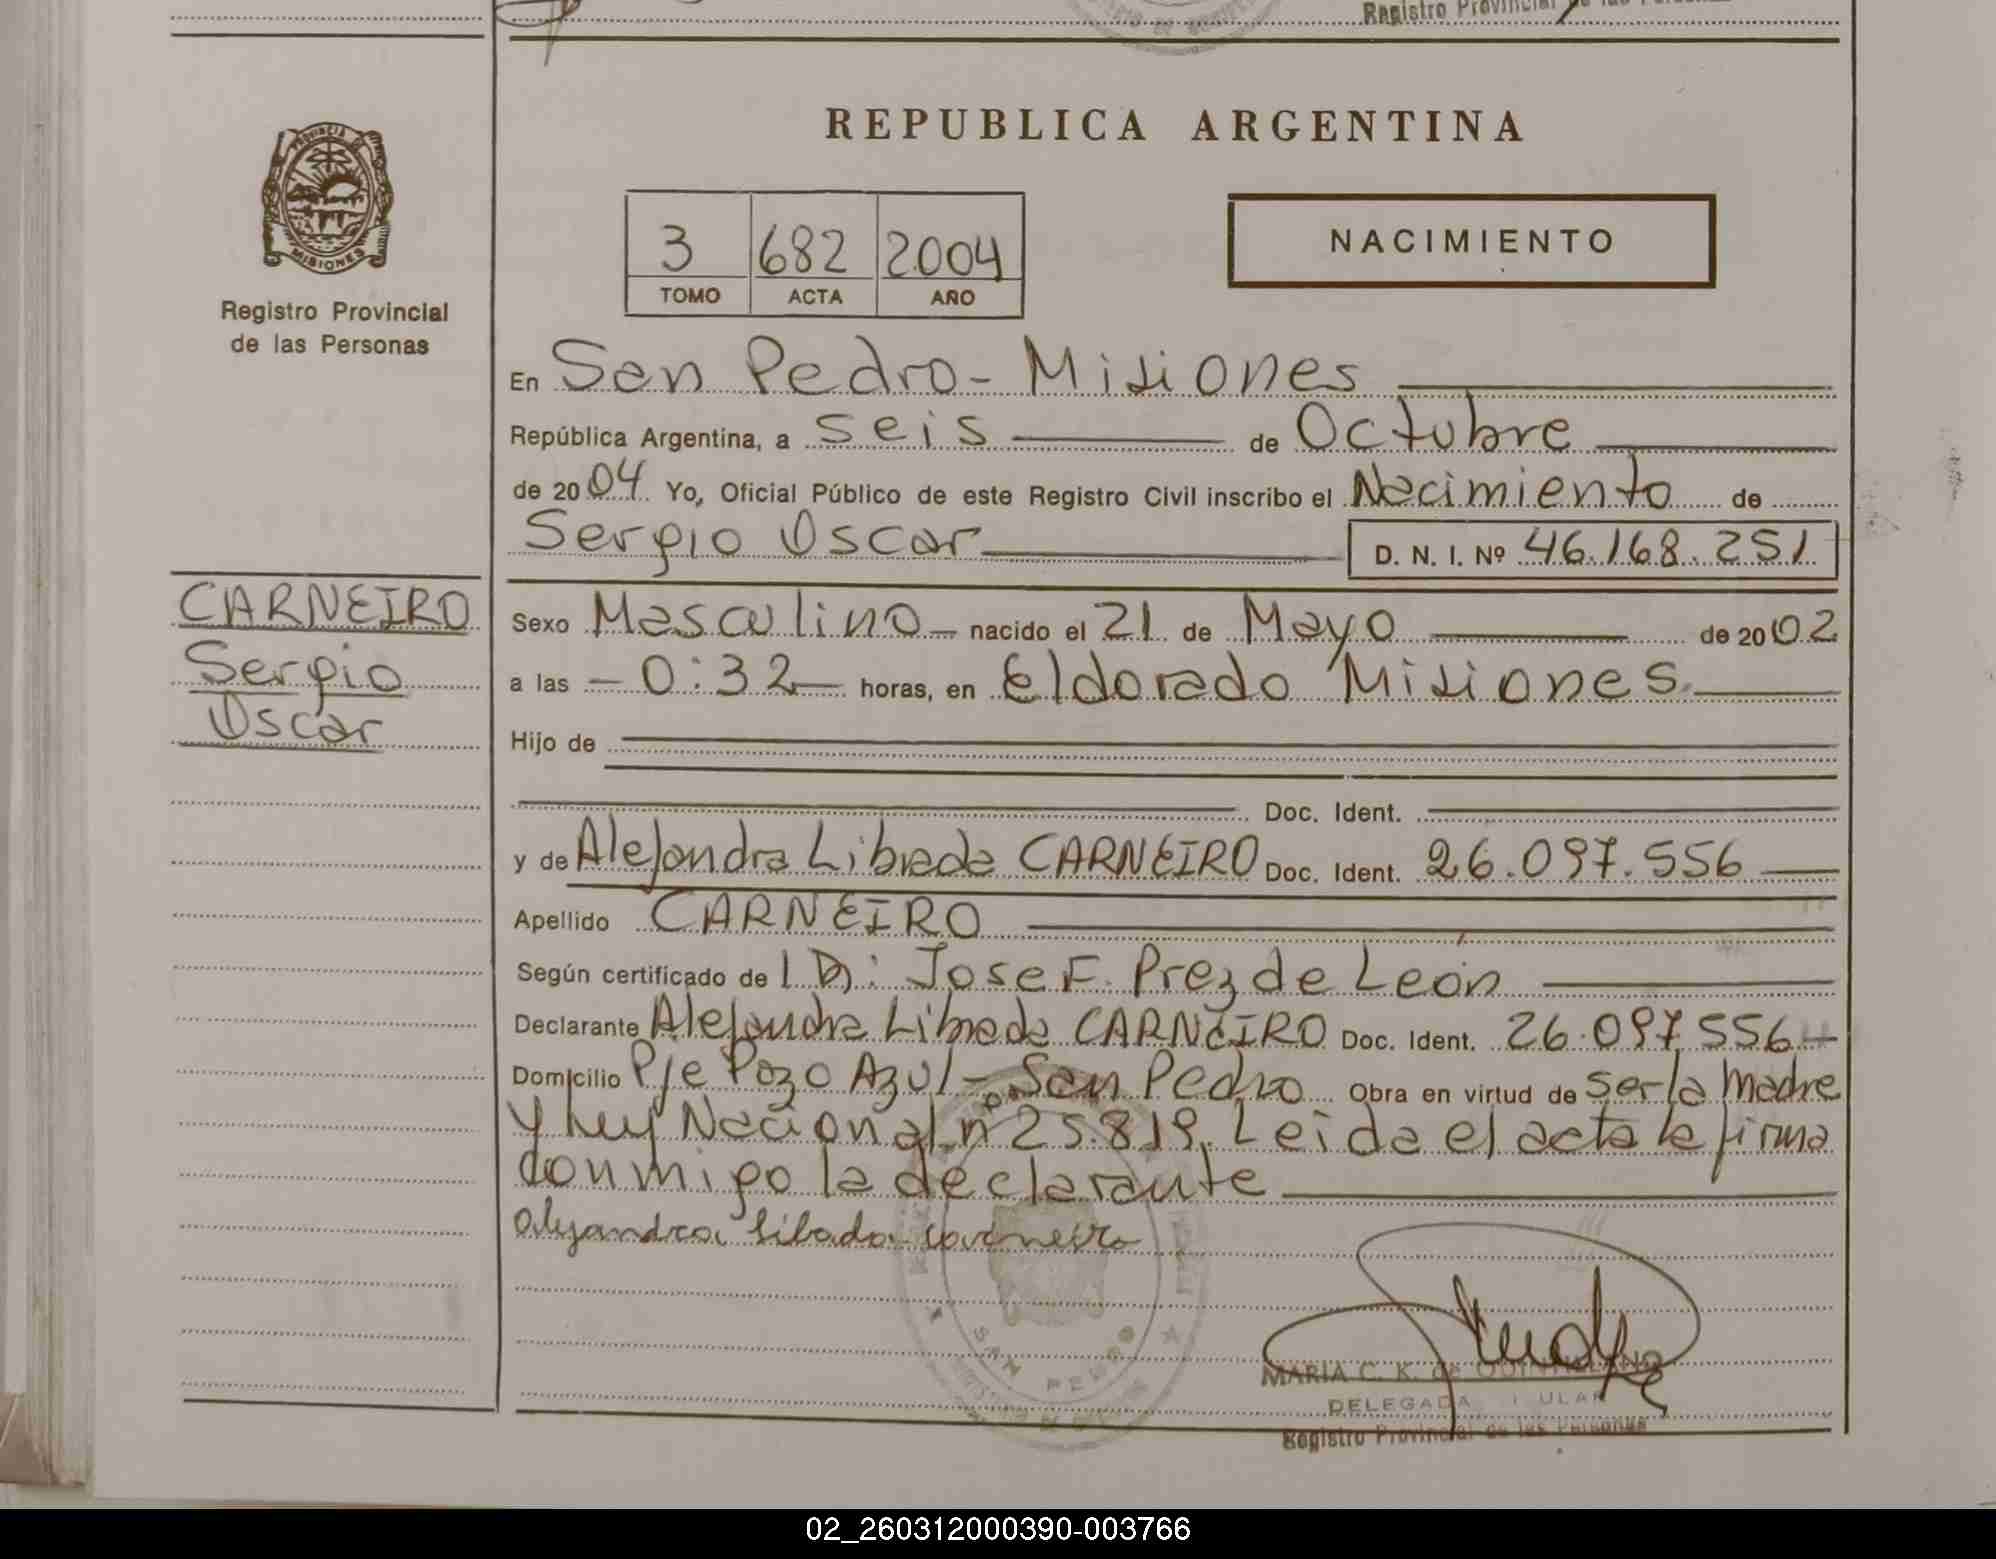 Registro Provincial de las Personas
REPUBLICA ARGENTINA
PROVINCIA
MISIONES
Registro Provincial
de las Personas
3 682 2004
TOMO ACTA AÑO
NACIMIENTO
En San Pedro - Misiones
República Argentina, a seis de Octubre
de 2004 Yo, Oficial Público de este Registro Civil inscribo el Nacimiento de
Sergio Oscar D. N. I. Nº 46.168.251
CARNEIRO
Sergio
Oscar
Sexo Masculino nacido el 21 de Mayo de 2002
a las - 0:32 - horas, en Eldorado Misiones
Hijo de
Doc. Ident.
y de Alejandra Librada CARNEIRO Doc. Ident. 26.097.556
Apellido CARNEIRO
Según certificado de Jose F. Prez de León
Declarante Alejandra Librada CARNEIRO Doc. Ident. 26.097.556
Domicilio Pje Pozo Azul - San Pedro Obra en virtud de ser la madre
y Ley Nacional nº 25.819. Leida el acta la firma
conmigo la declarante
Alejandra libada carneiro
SAN PEDRO
MARIA C. K. de
DELEGADA TITULAR
Registro Provincial de las Personas
02_260312000390-003766